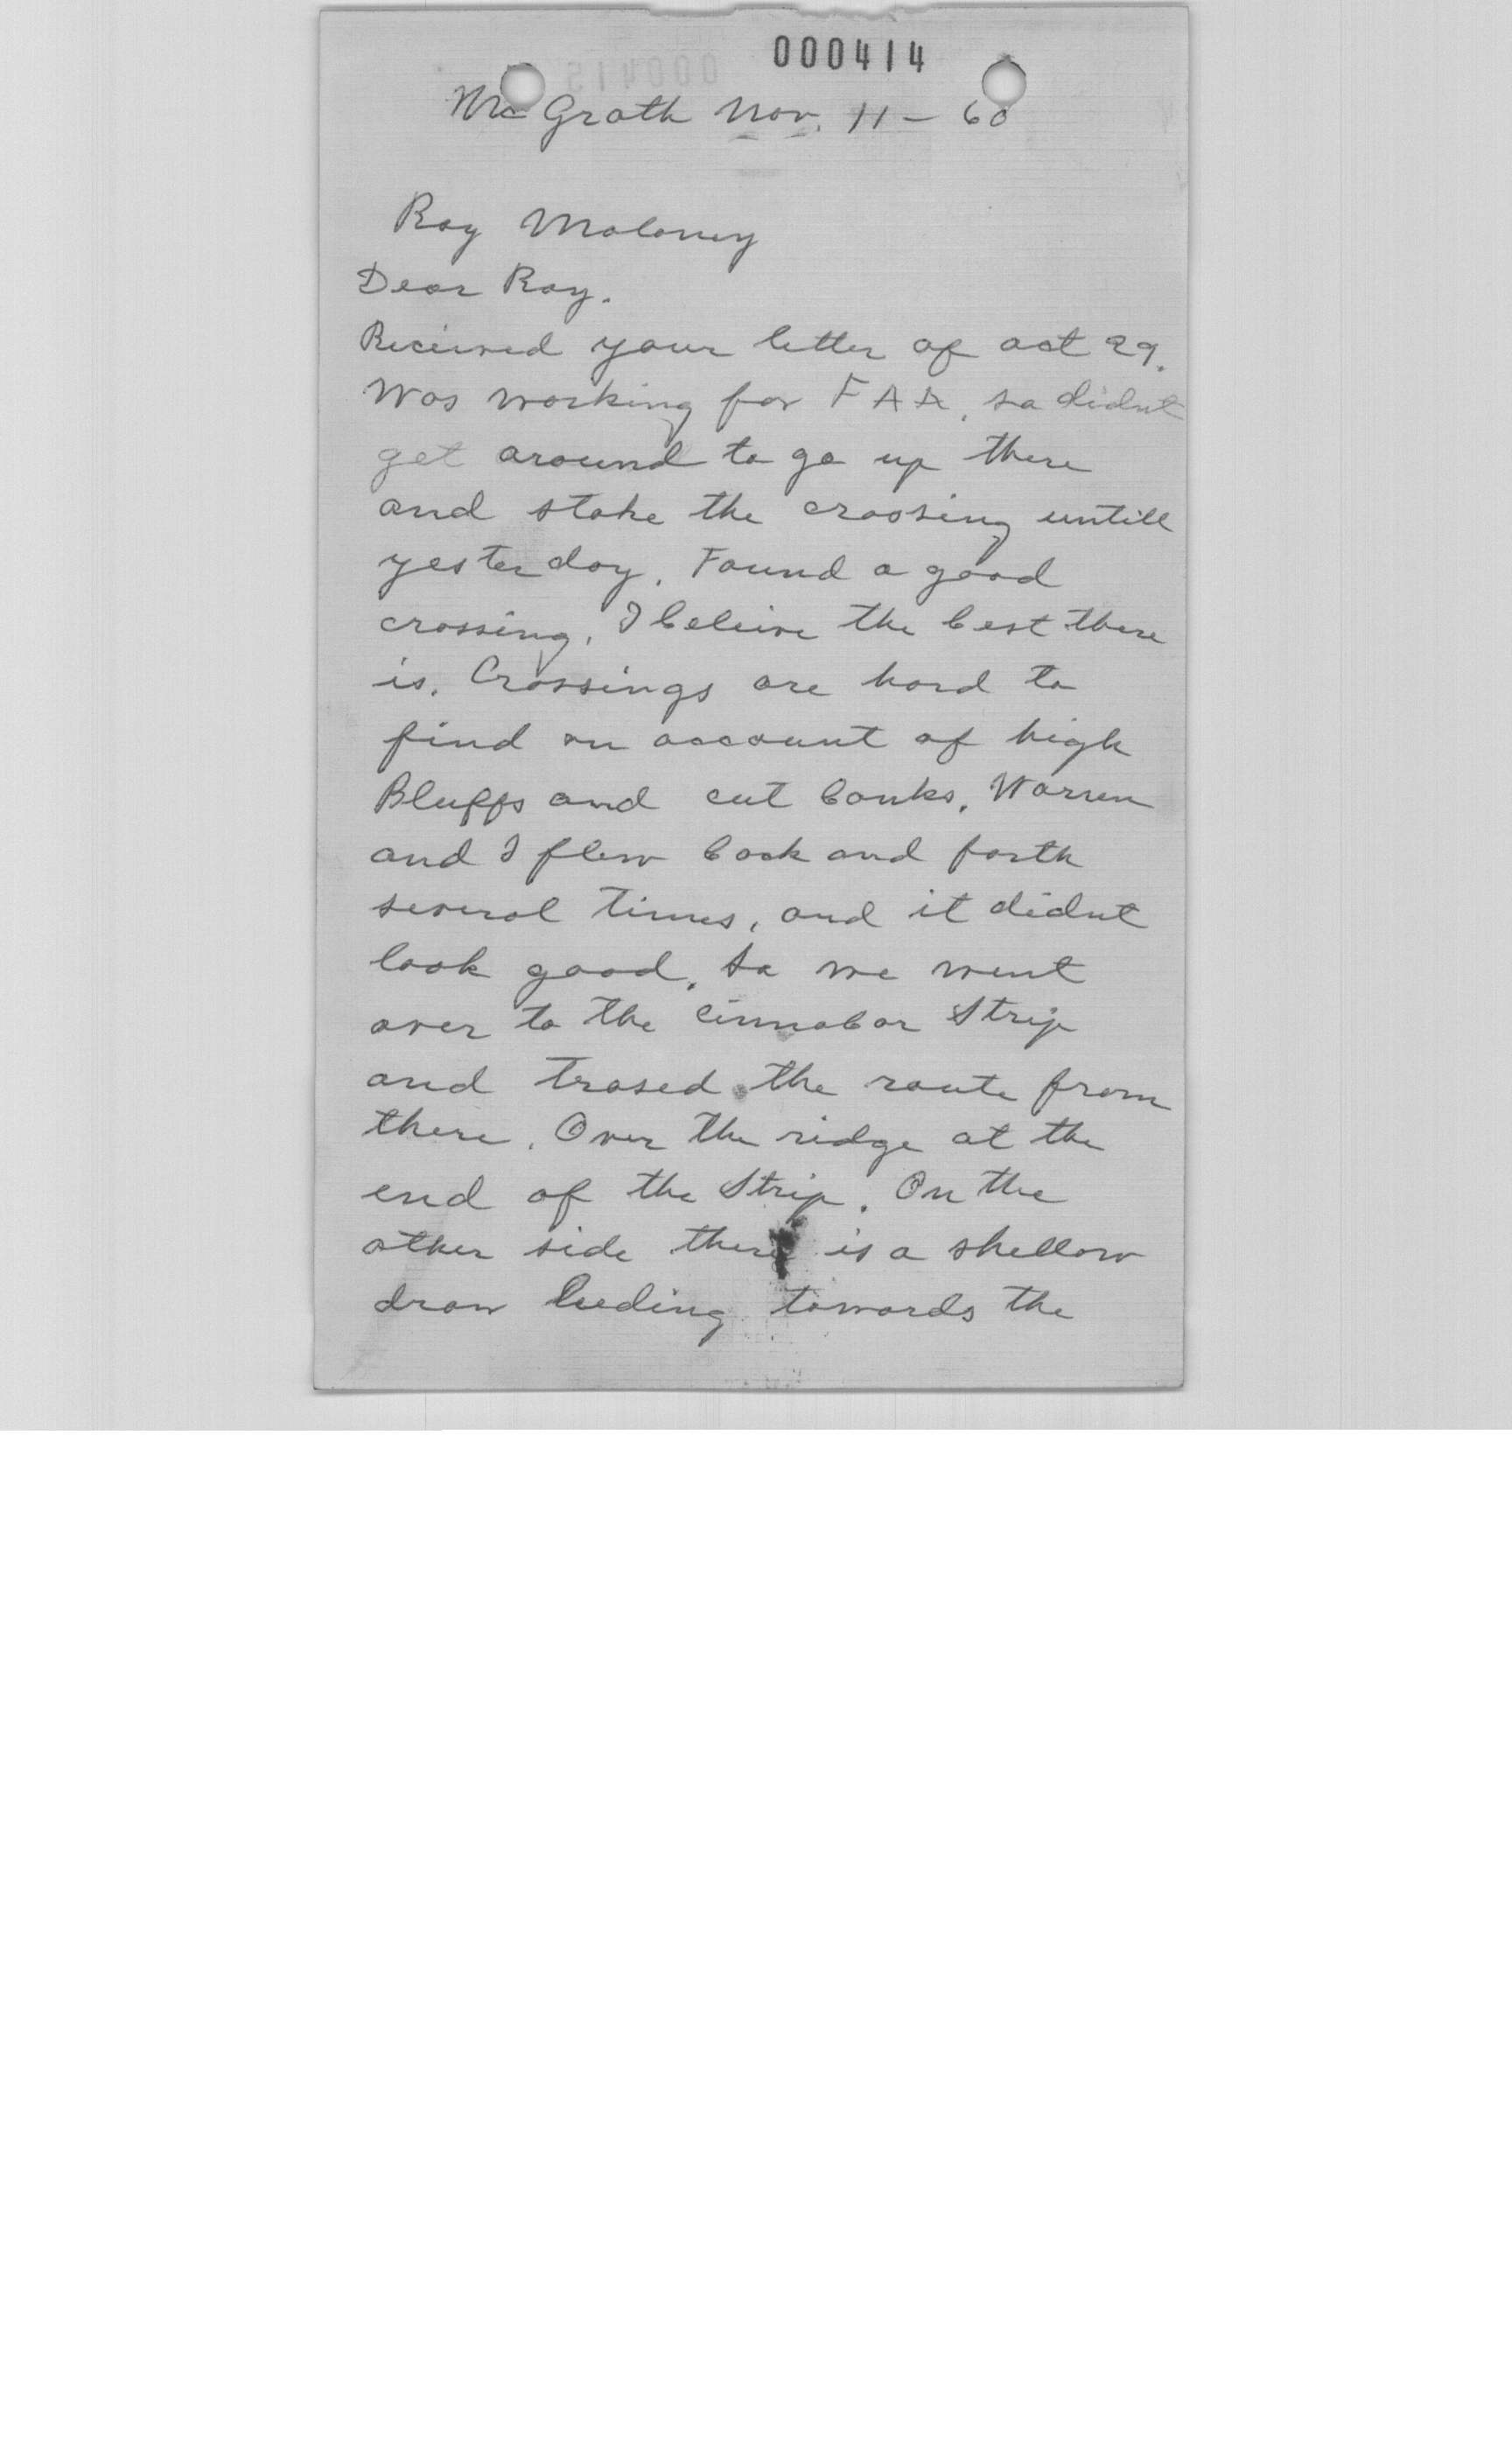 000414
McGrath Nov. 11 - 60
Ray Maloney
Dear Ray.
Received your letter of oct 29.
Was working for FAA, so didnt
get around to go up there
and stake the crossing untill
yesterday. Found a good
crossing, I beleive the best there
is. Crossings are hard to
find on account of high
Bluffs and cut banks. Warren
and I flew back and forth
several times, and it didnt
look good. So we went
over to the Cinnabar Strip
and trased the route from
there. Over the ridge at the
end of the Strip. On the
other side there is a shellow
draw leeding towards the